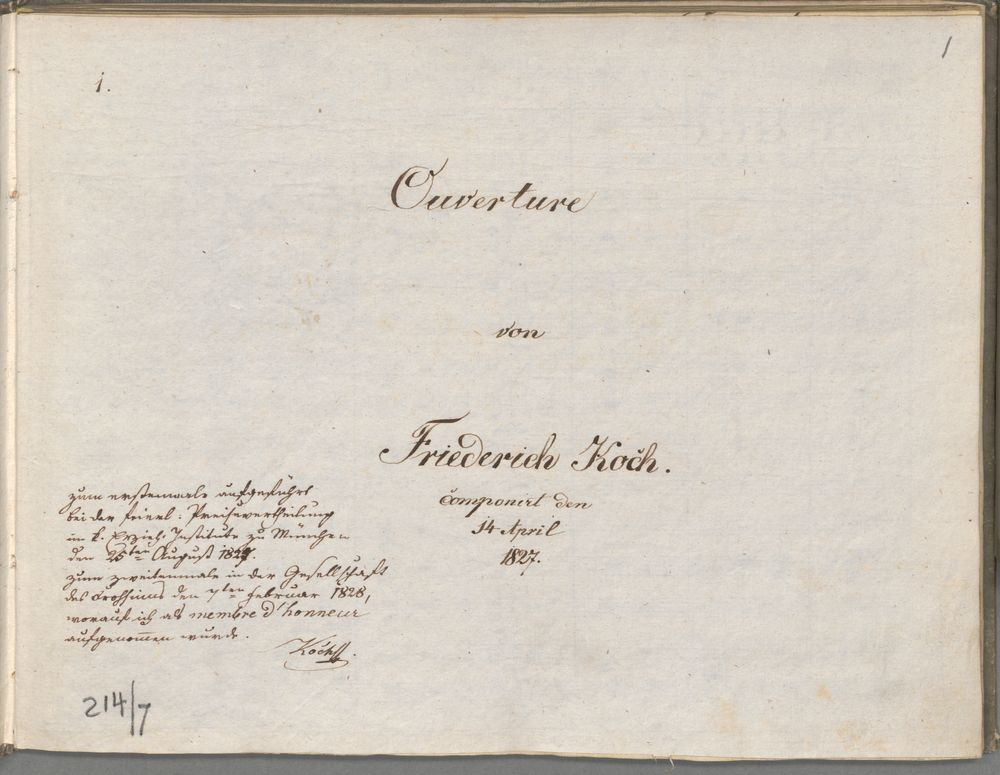 1.
1
Ouverture
von
Friederich Koch.
Componirt den
14 April
1827.
zum erstenmale aufgeführt
bei der feierl: Preisevertheilung
im k. Erzieh. Institute zu München
den August 1827.
zum zweitenmale in der Gesellschaft
des Frohsinns den 7ten Februar 1828,
worauf ich als membre d'honneur
aufgenommen wurde.
Koch.
214/7